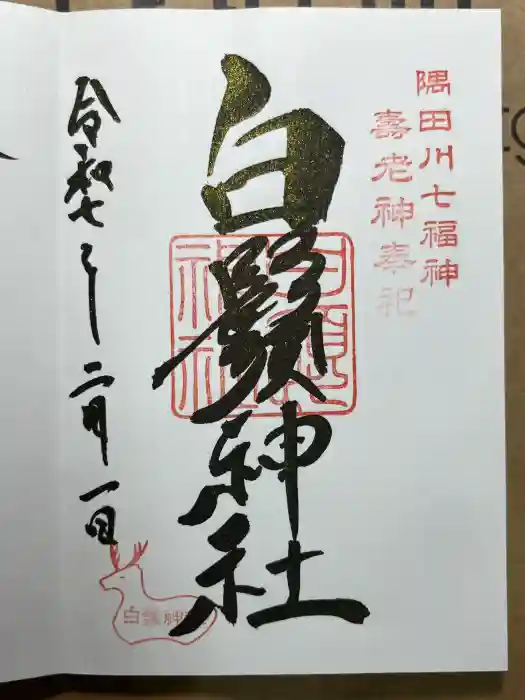 隅田川七福神
壽老神奉祀
白鬚神社
白鬚神社
令和七年二月一日
白鬚神社